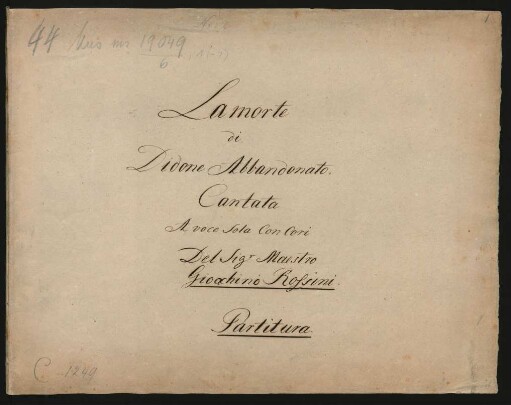 44 Mus ms 19049
6
La morte
di
Didone Abbandonato.
Cantata
A voce sola Con Cori
Del Sigr Maestro
Giochino Rossini.
Partitura.
C. 1249